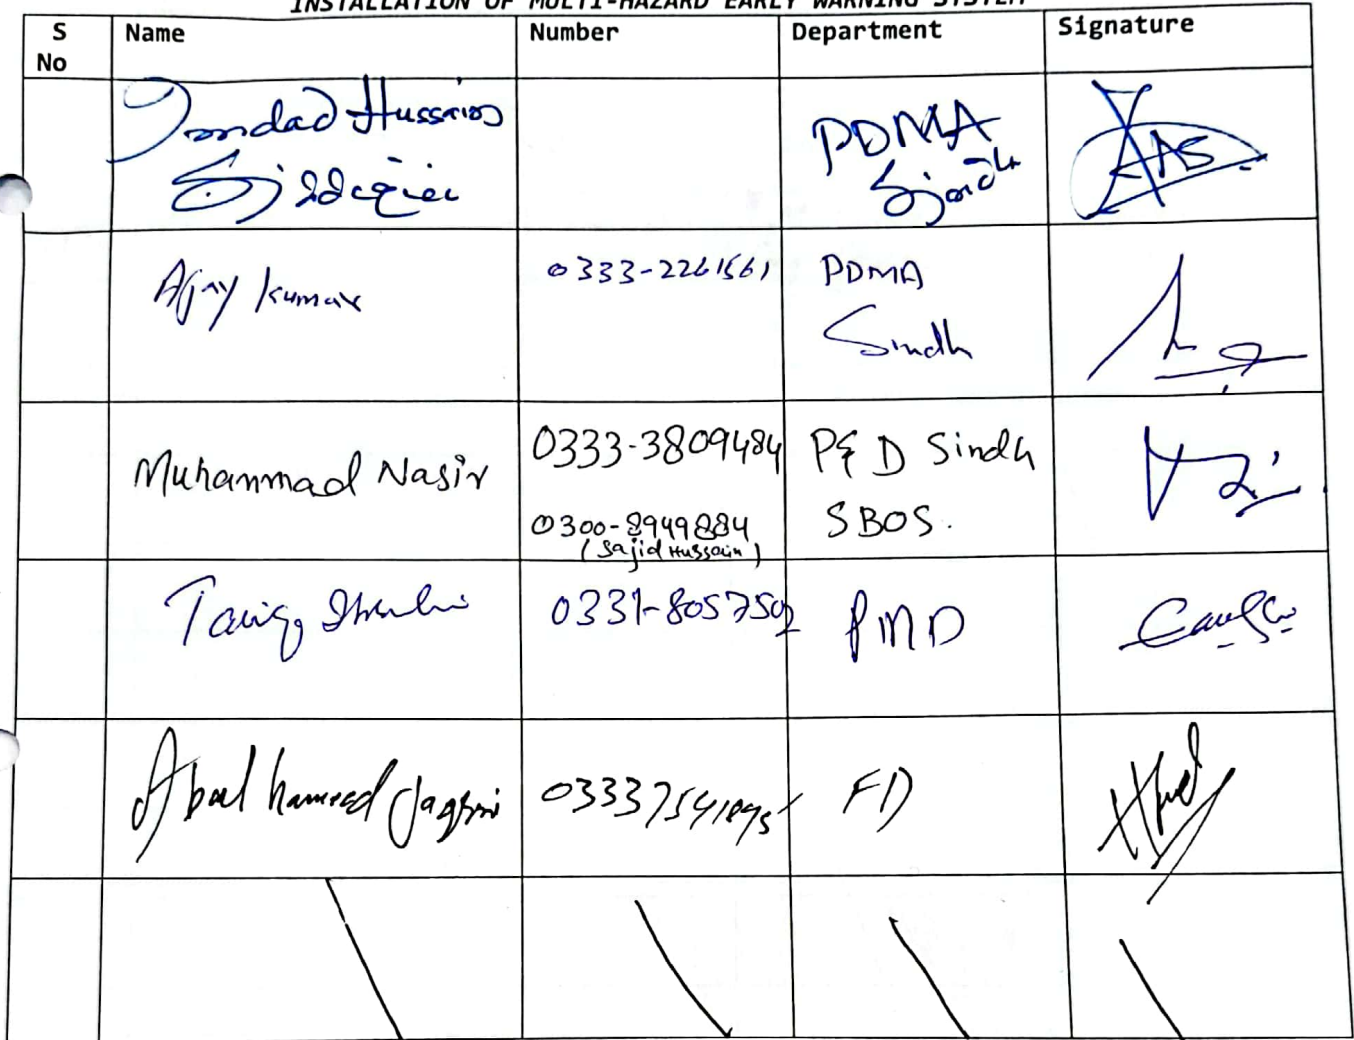 INSTALLATION OF MULTI-HAZARD EARLY WARNING SYSTEM
S No Name Number Department Signature
Imdad Hussain
Siddiqui
PDMA
Sindh
Ajay Kumar 0333-2261561 PDMA
Sindh
Muhammad Nasir 0333-3809484 P& D Sindh
0300-8949884 SBOS.
(Sajid Hussain)
Tariq 0331-8057502 PMD
Abdul hameed 03337541895 FD